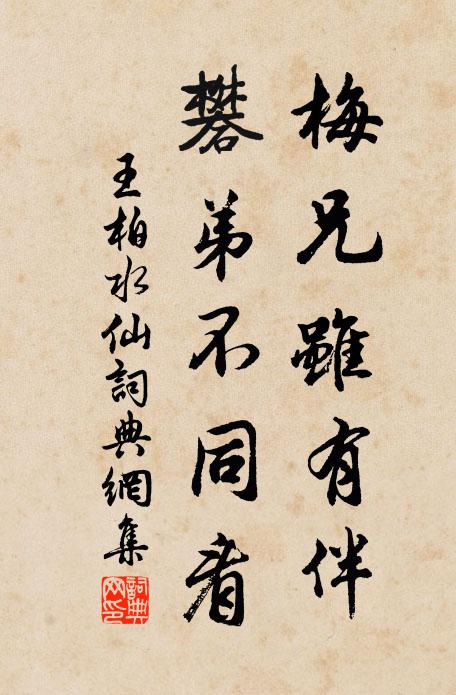 梅兄雖有伴
礬弟不同看
王柏水仙詞典網集
詞典网印